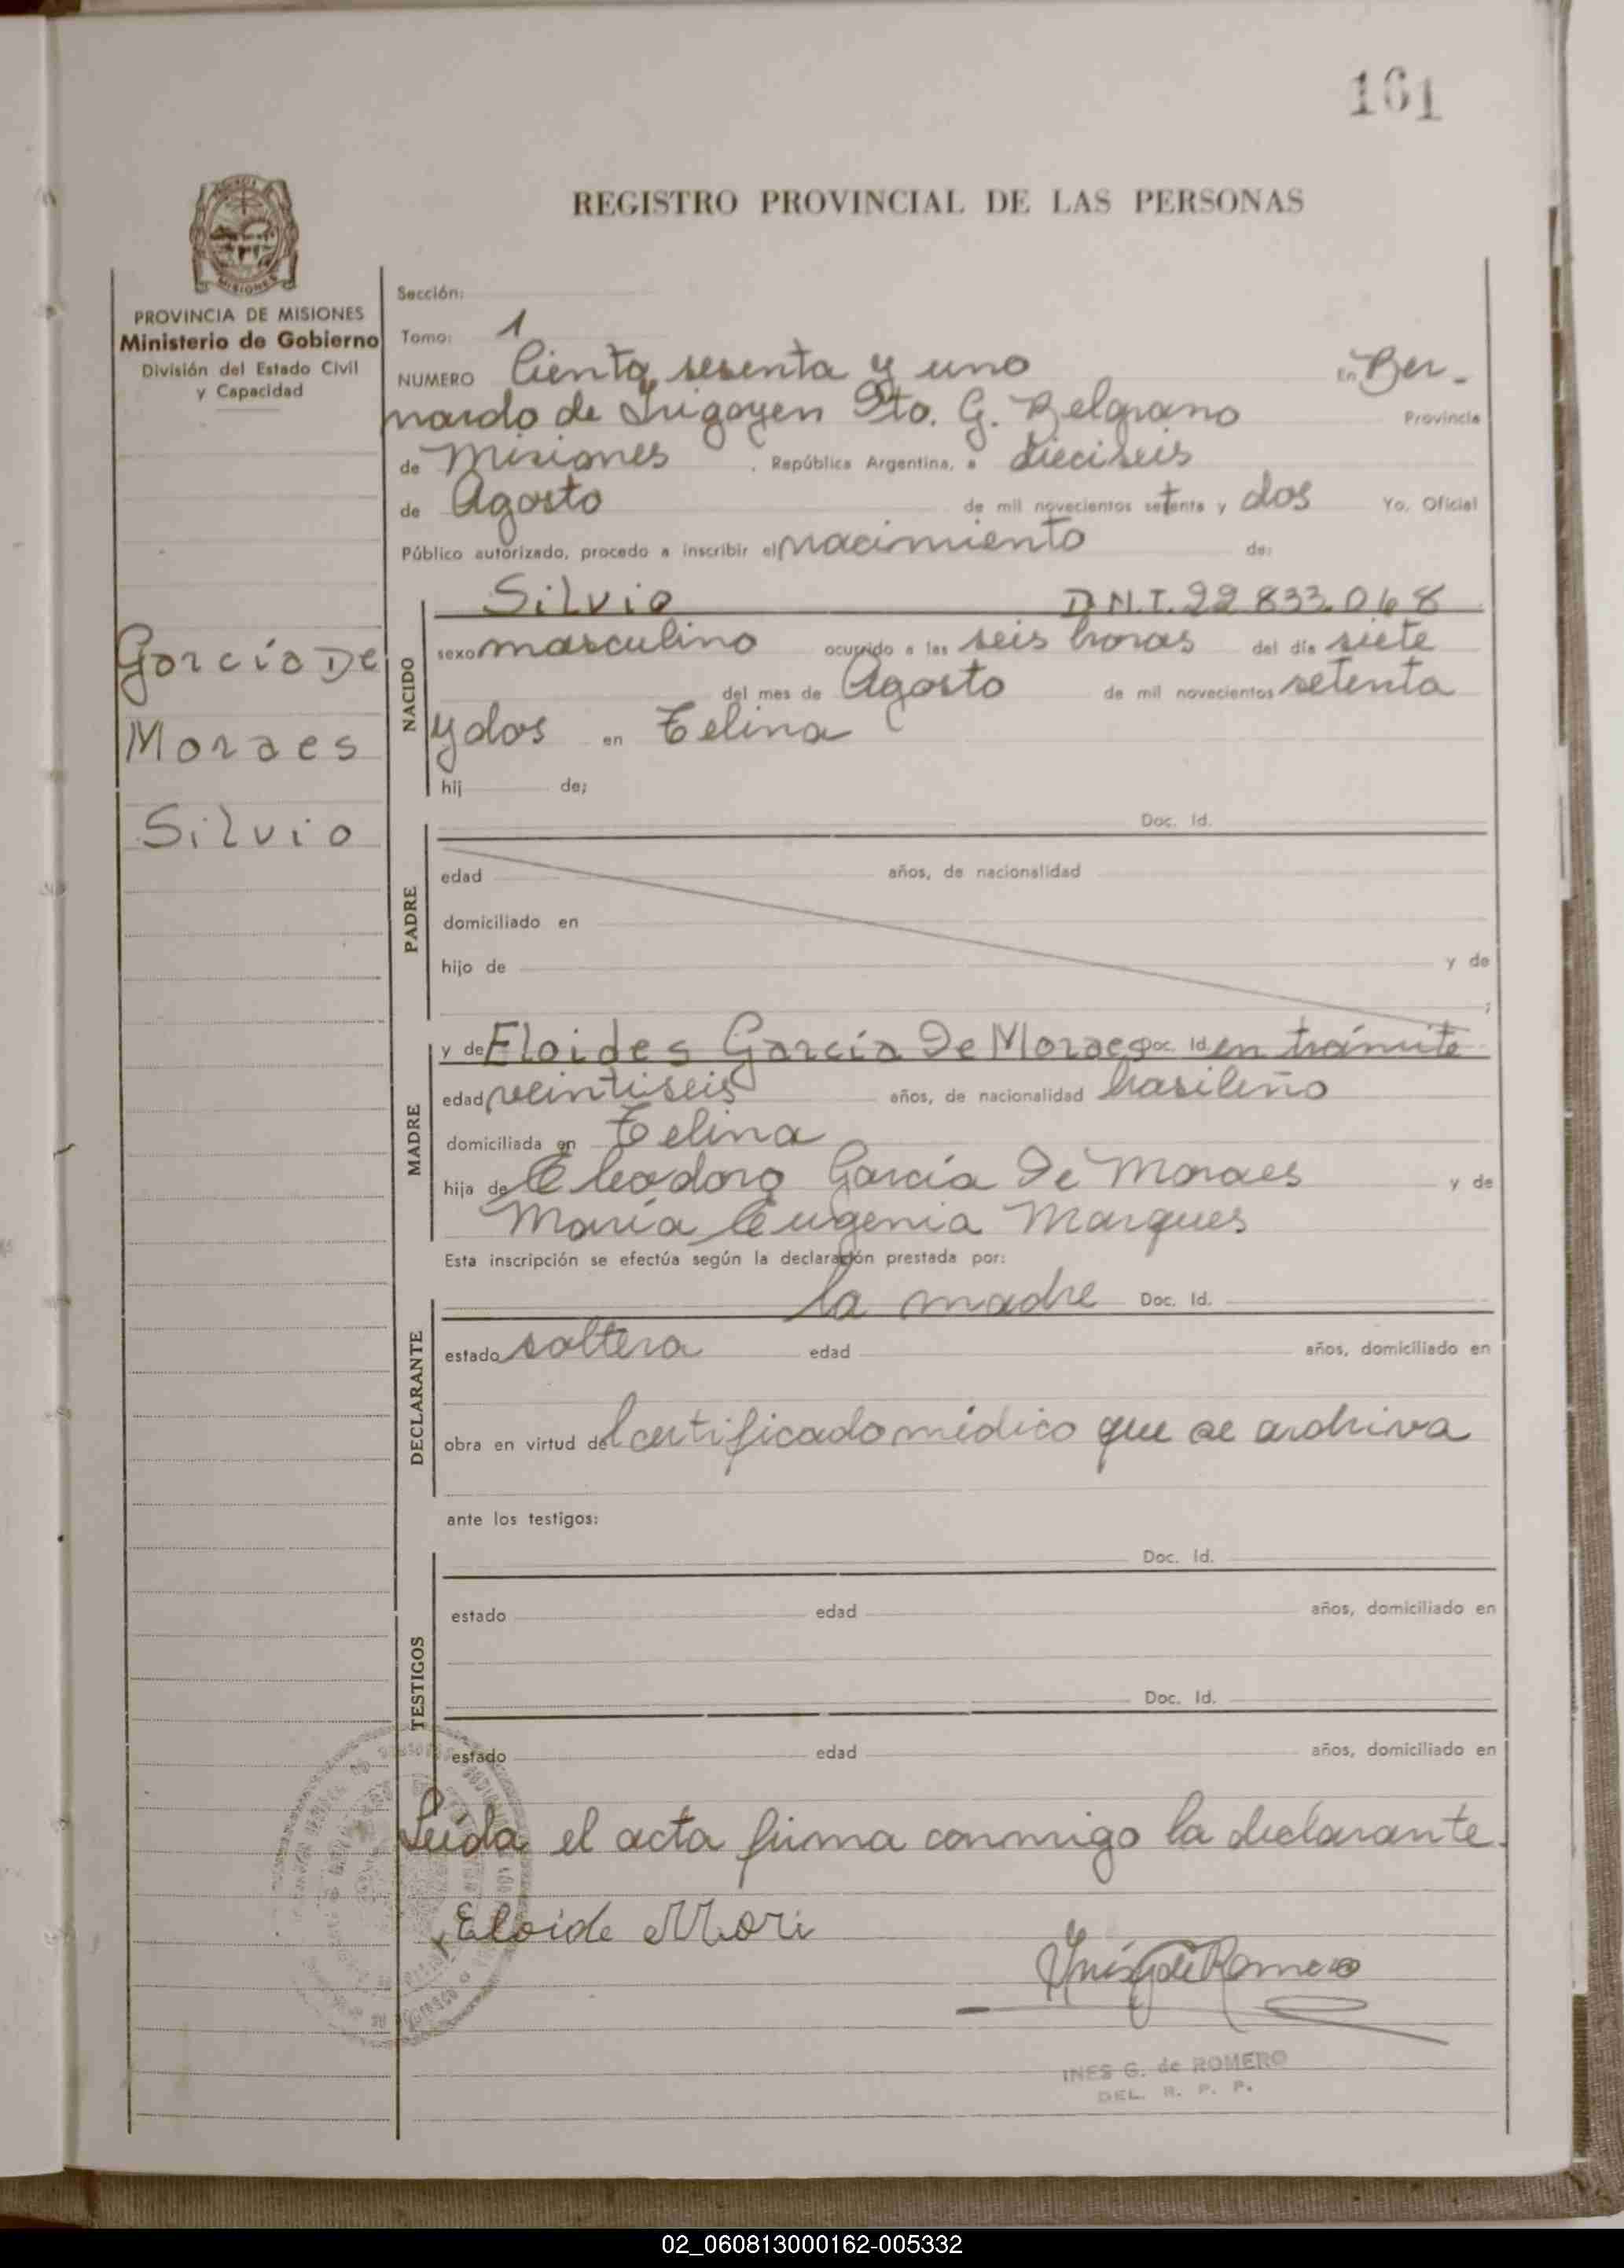 161
REGISTRO PROVINCIAL DE LAS PERSONAS
MISIONES
PROVINCIA DE MISIONES
Ministerio de Gobierno
División del Estado Civil
y Capacidad
Garcia De
Moraes
Silvio
Sección:
Tomo: 1
NUMERO Ciento sesenta y uno En Ber-
nardo de Irigoyen Dto. G. Belgrano Provincia
de Misiones, República Argentina, a dieciseis
de Agosto de mil novecientos setenta y dos Yo, Oficial
Público autorizado, procedo a inscribir el nacimiento de:
NACIDO
Silvio D.N.I. 22 833.068
sexo masculino ocurrido a las seis horas del día siete
del mes de Agosto de mil novecientos setenta
y dos en Celina
hij de;
PADRE
Doc. Id.
edad años, de nacionalidad
domiciliado en
hijo de y de
;
MADRE
y de Eloides García De Moraes Doc. Id. en trámite
edad veintiseis años, de nacionalidad brasileña
domiciliada en Celina
hija de Eleodoro García De Moraes y de
María Eugenia Marques
Esta inscripción se efectúa según la declaración prestada por:
DECLARANTE
la madre Doc. Id.
estado soltera edad años, domiciliado en
obra en virtud del certificado médico que se archiva
ante los testigos:
TESTIGOS
Doc. Id.
estado edad años, domiciliado en
Doc. Id.
estado edad años, domiciliado en
Leída el acta firma conmigo la declarante.
x Eloide Mori
Inés G de Romero
INES G. de ROMERO
DEL. R. P. P.
02_060813000162-005332